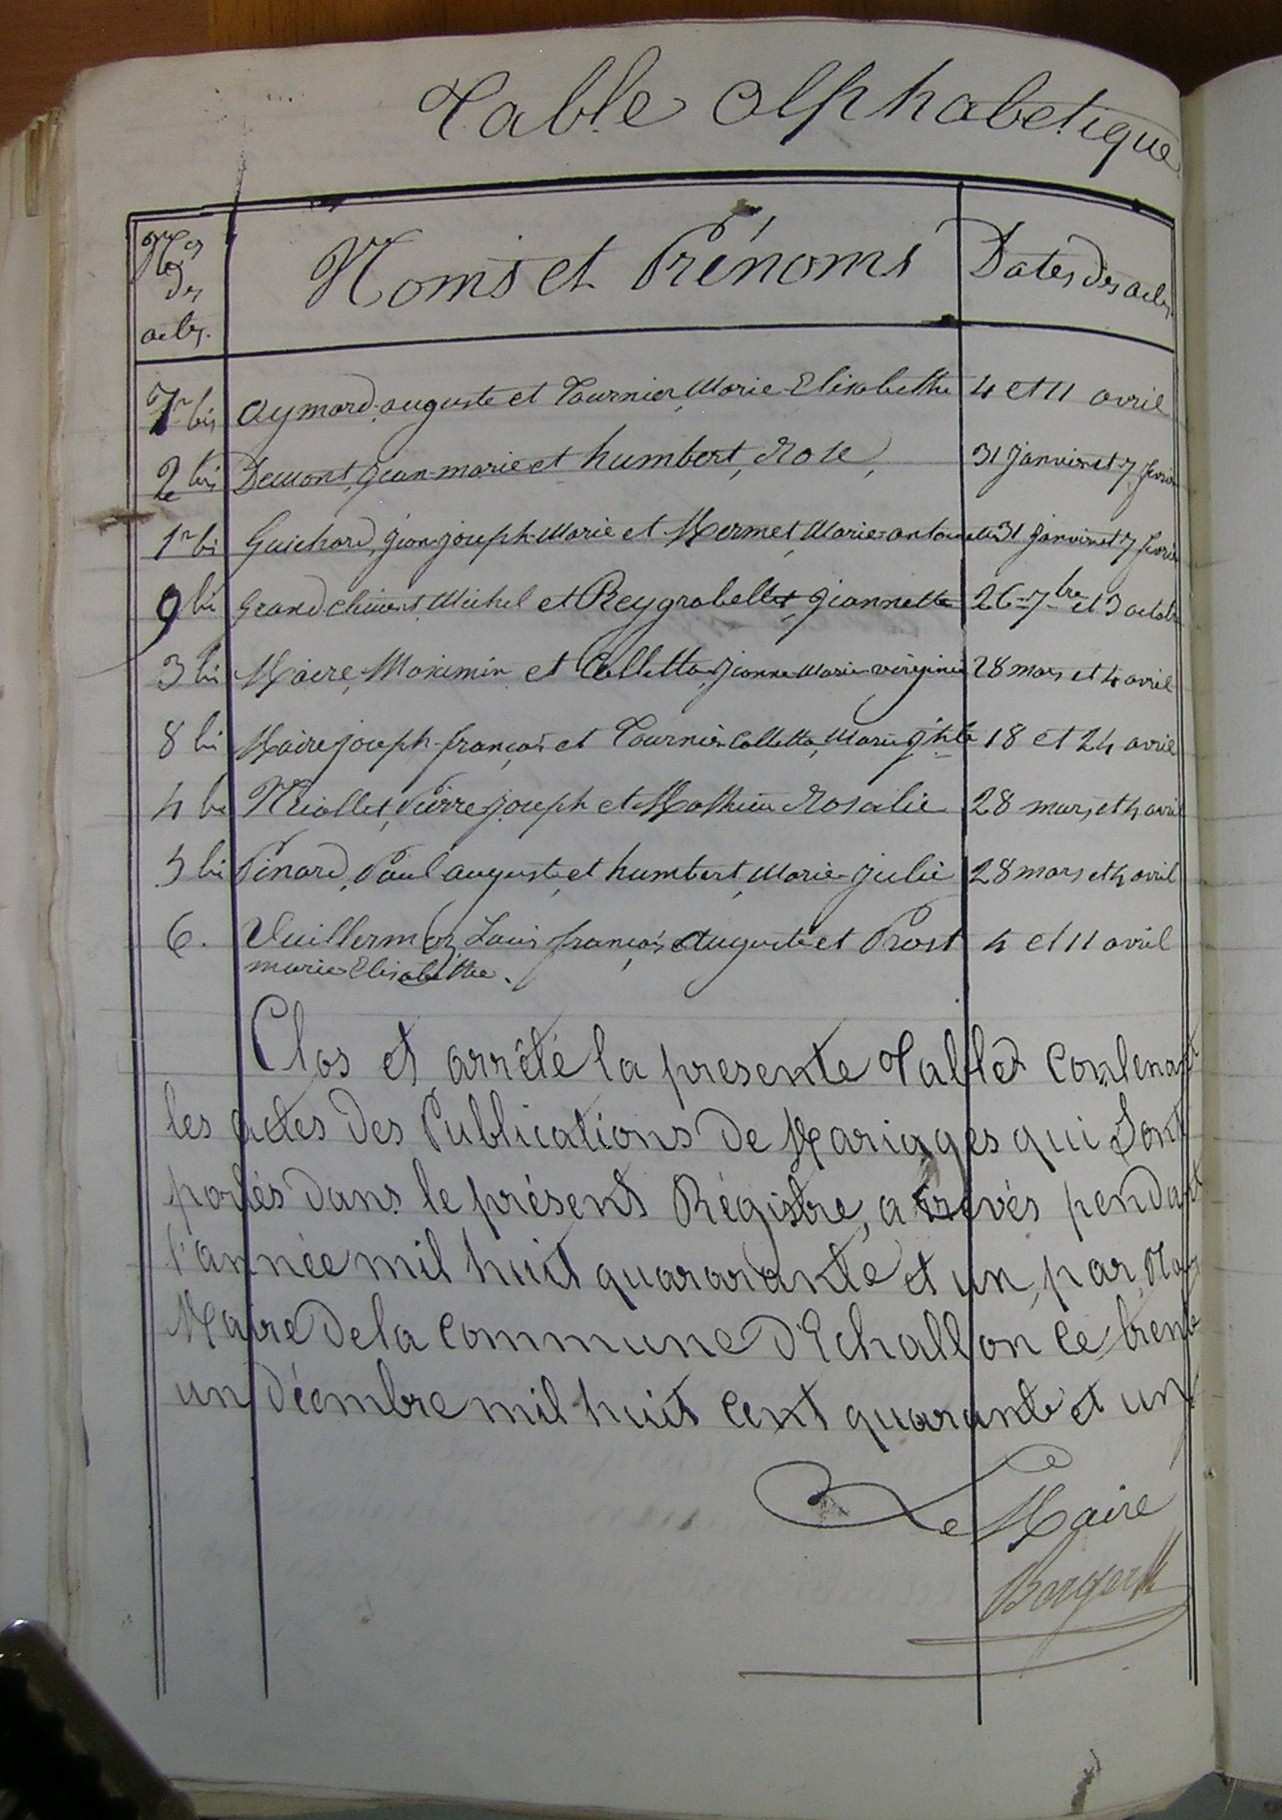 Table Alphabetique
Nos des actes. Noms et Prénoms Dates des actes
7 bis Aymard, auguste et Tournier, Marie Elisabethe 4 et 11 avril
2 bis Demont, jean-marie et humbert, Rose, 31 Janvier et 7 fevri
1er bis Guichard, jean-joseph-Marie et Mermet, Marie-antoinette 31 janvier et 7 fevrier
9 bis Grand chment Michel et Reygrobellet, jeannette 26 7bre et 3 octobr
3 bis Maire, Maximin et Colletta, jeanne Marie virginie 28 mars et 4 avril
8 bis Maire joseph françois et Tournier Colletta, Marie 18 et 24 avril
4 bis Niollet, Pierre joseph et Mathieu Rosalie 28 mars et 4 avril
5 bis Pinard, Paul auguste, et humbert, Marie-julie 28 mars et 4 avril
6. Vuillermoz, Louis françois Auguste et Prost 4 et 11 avril
marie Elisabethe.
Clos et arrêté la presente Table contenant
les actes des Publications de Mariages qui Sont
portés dans le présent Régistre, a pendant
l'année mil huit quararante et un, par Nous
Maire de la commune d'Echallon ce trente
un décembre mil huit cent quarante et un
Le Maire